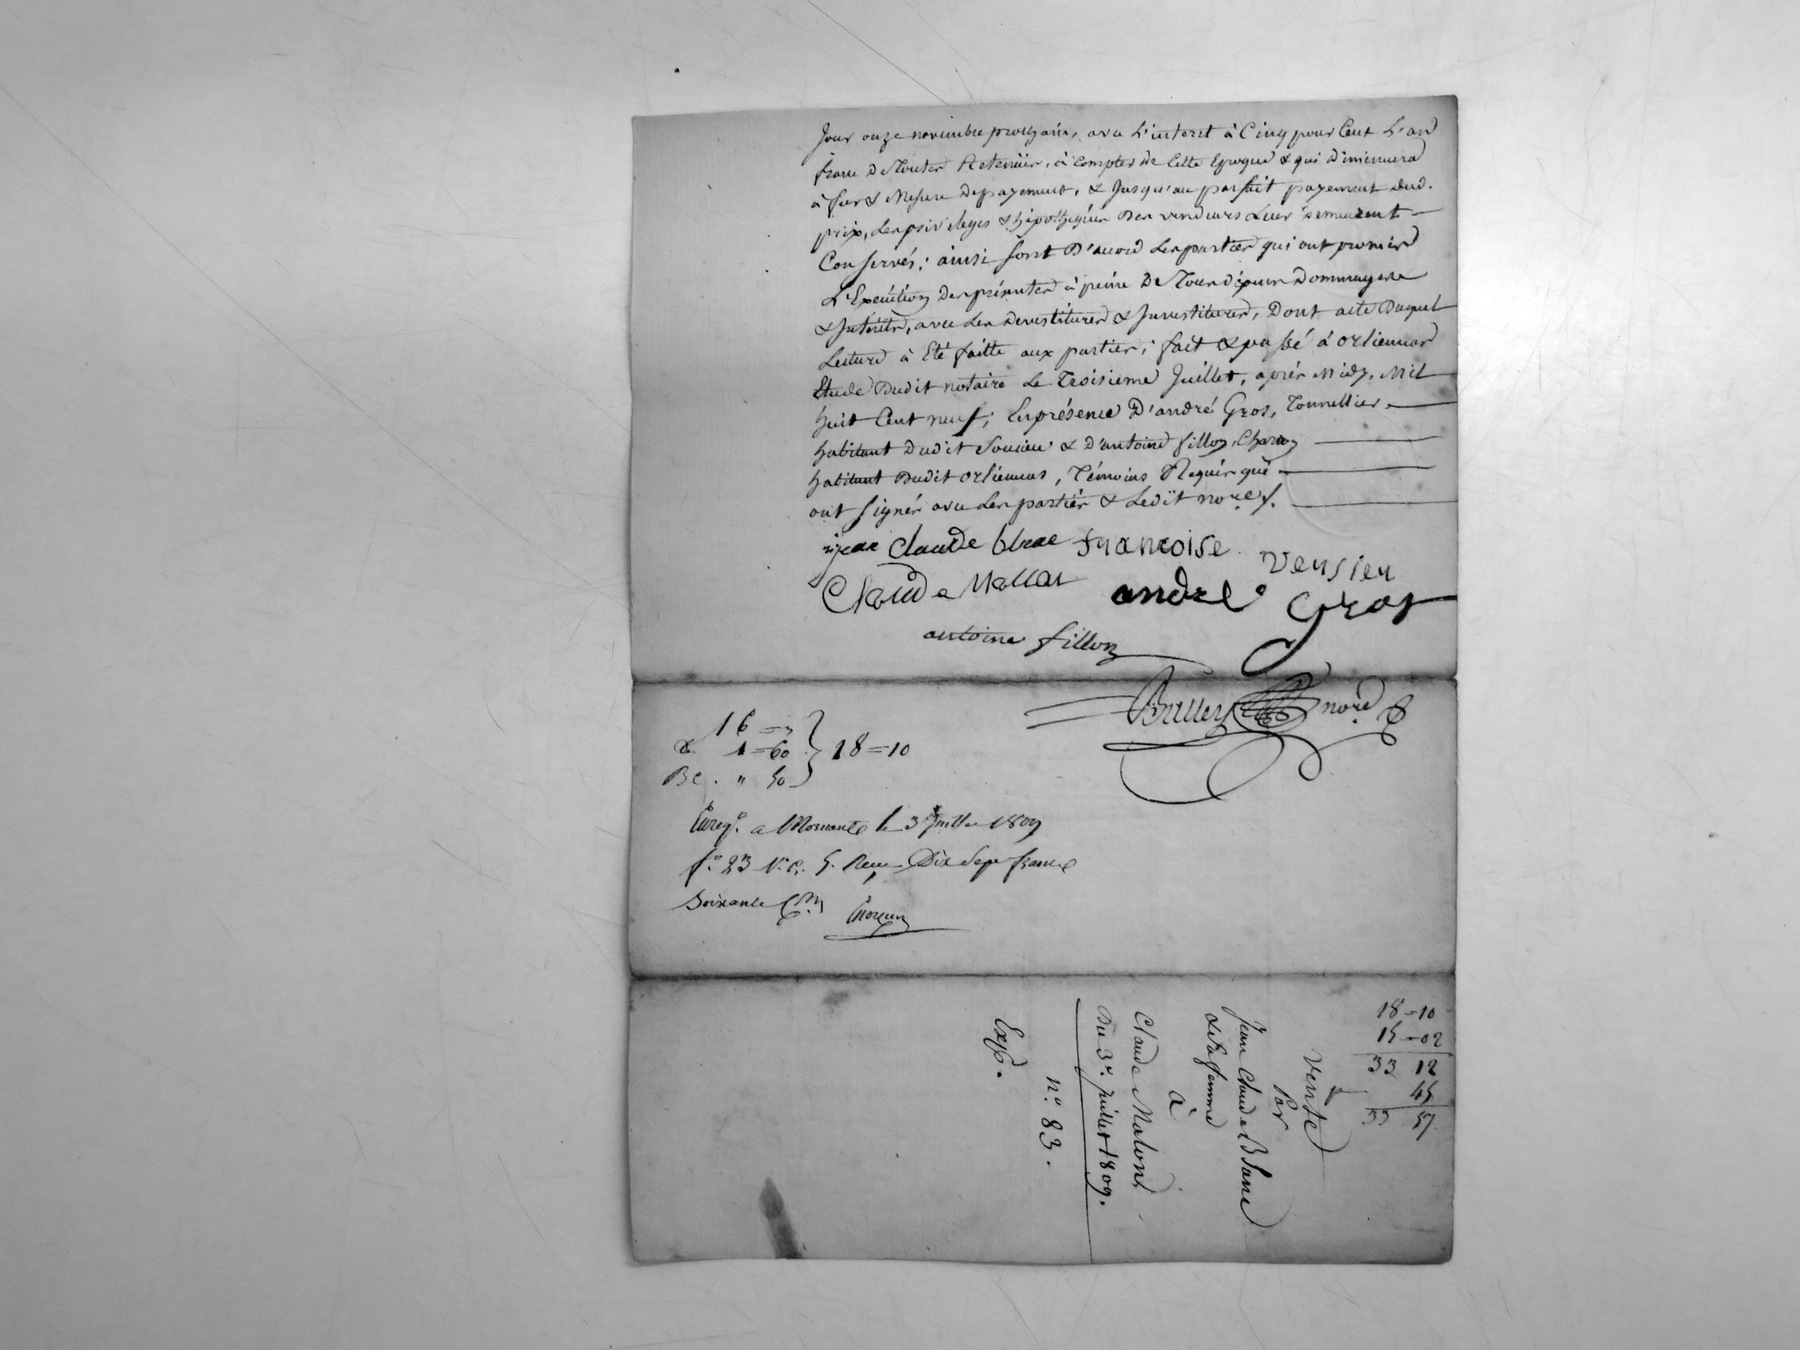 Jour onze novembre prochain, avec L'interet à Cinq pour Cent L'an
franc De Toutes Retenües, à compter De Cette Epoque & qui Diminuera
à fur & Mesure De payement, & Jusqu'au parfait payement dud.
prix, Les privileges & hipothèques Des vendeurs Leur demeurent
Conservés; ainsi sont D'accord Les parties qui ont promis
L'Execution Des présentes à peine De Tous dépens Dommages
& Intérêts, avec Les Devestitures & Investitures, Dont acte Duquel
Lecture à Eté faitte aux parties; fait & passé à orliennas
Etude Dudit notaire Le Troisieme Juillet, après Midy, Mil
huit Cent neuf; En présence D'andré Gros, Tonnellier,
habitant Dudit Soucieu & D'antoine fillon, Charon
habitant Dudit orliennas, Témoins Requis qui
ont signés avec Les parties & Ledit no.re /.
jean Claude blanc francoise Versieu
Claude andré Gros
antoine fillon
no.re
16 =
1 = 60 } 18 = 10
" 50
Enreg. a Mornant le 3 Juillet 1809
f.o 23 v.o c. 5. Reçu Dix Sept francs
Soixante C.mes
18 = 10
15 = 02
33 12
45
33 57
Vente
Par
Jean Claude Blanc
& Sa femme
à
Claude
Du 3.e Juillet 1809.
n.o 83.
Exp.